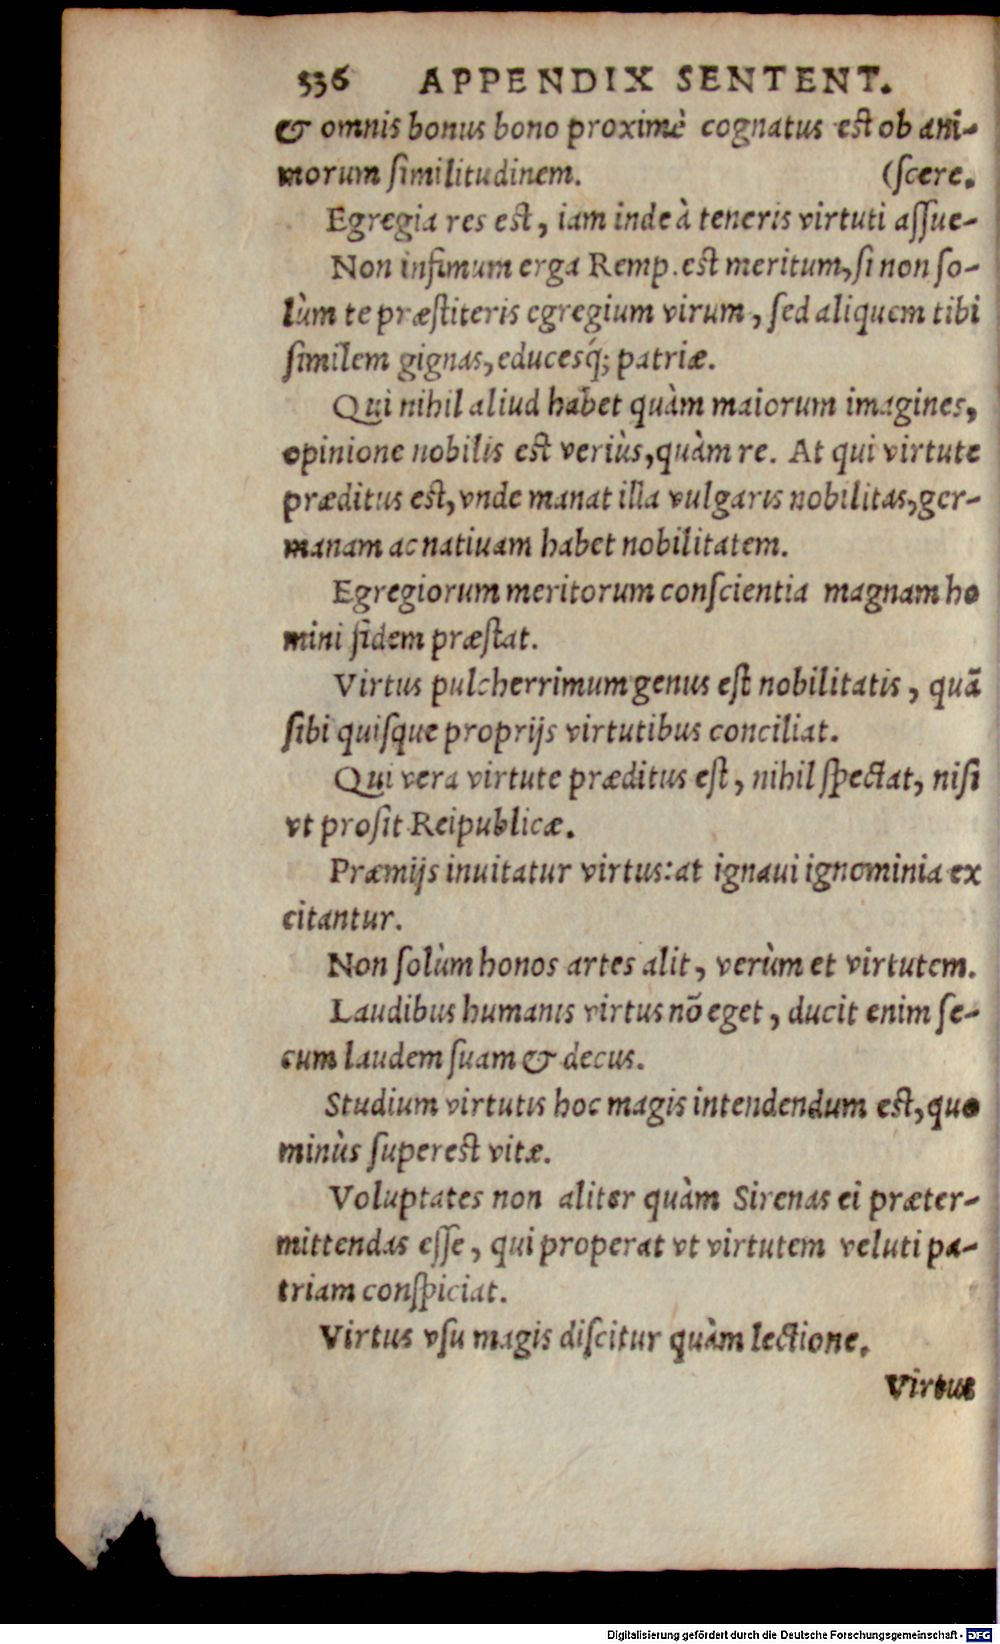 336 APPENDIX SENTENT.
& omnis bonus bono proximè cognatus est ob ani-
morum similitudinem. (scere.
Egregia res est, iam inde à teneris virtuti assue-
Non infimum erga Remp. est meritum, si non so-
lùm te præstiteris egregium virum, sed aliquem tibi
similem gignas, educesq́; patriæ.
Qui nihil aliud habet quàm maiorum imagines,
opinione nobilis est veriùs, quàm re. At qui virtute
præditus est, vnde manat illa vulgaris nobilitas, ger-
manam ac natiuam habet nobilitatem.
Egregiorum meritorum conscientia magnam ho
mini fidem præstat.
Virtus pulcherrimum genus est nobilitatis, quã
sibi quisque proprijs virtutibus conciliat.
Qui vera virtute præditus est, nihil spectat, nisi
vt prosit Reipublicæ.
Præmijs inuitatur virtus: at ignaui ignominia ex
citantur.
Non solùm honos artes alit, verùm et virtutem.
Laudibus humanis virtus nõ eget, ducit enim se-
cum laudem suam & decus.
Studium virtutis hoc magis intendendum est, quo
minùs superest vitæ.
Voluptates non aliter quàm Sirenas ei præter-
mittendas esse, qui properat vt virtutem veluti pa-
triam conspiciat.
Virtus vsu magis discitur quàm lectione.
Virtus
Digitalisierung gefördert durch die Deutsche Forschungsgemeinschaft - DFG